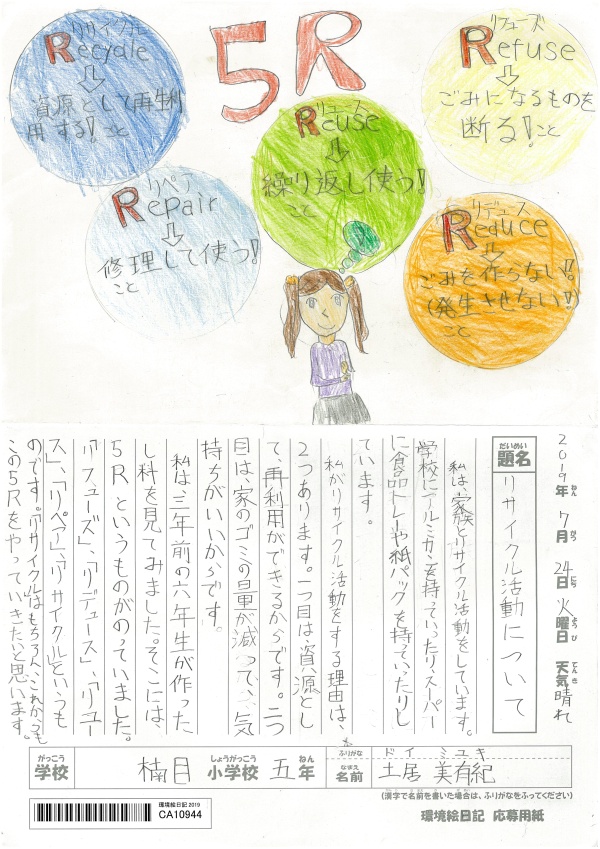 5R
リサイクル
Recycle
⇩
資源として再利
用する!こと
リフューズ
Refuse
⇩
ごみになるものを
断る!こと
リユース
Reuse
⇩
繰り返し使う!
こと
リペア
Repair
⇩
修理して使う!
こと
リデュース
Reduce
⇩
ごみを作らない!
(発生させない!)
こと
2019年 7月 24日 火曜日 天気 晴れ
ねん がつ にち ようび てんき
だいめい
題名
リサイクル活動について
私は、家族とリサイクル活動をしています。
学校にアルミカンを持っていったり、スーパー
に食品トレーや紙パックを持っていったりし
ています。
私がリサイクル活動をする理由は、
2つあります。一つ目は、資源とし
て、再利用ができるからです。二つ
目は、家のゴミの量が減って、気
持ちがいいからです。
私は、三年前の六年生が作った
し料を見てみました。そこには、
5Rというものがのっていました。
「リフューズ」、「リデュース」、「リユー
ス」、「リペア」、「リサイクル」というも
のです。「リサイクル」はもちろん、これからも
この5Rをやっていきたいと思います。
がっこう しょうがっこう ねん
学校 楠目 小学校 五年
ふりがな ドイ ミユキ
なまえ
名前 土居 美有紀
(漢字で名前を書いた場合は、ふりがなをふってください)
環境絵日記 2019
CA10944
環境絵日記 応募用紙